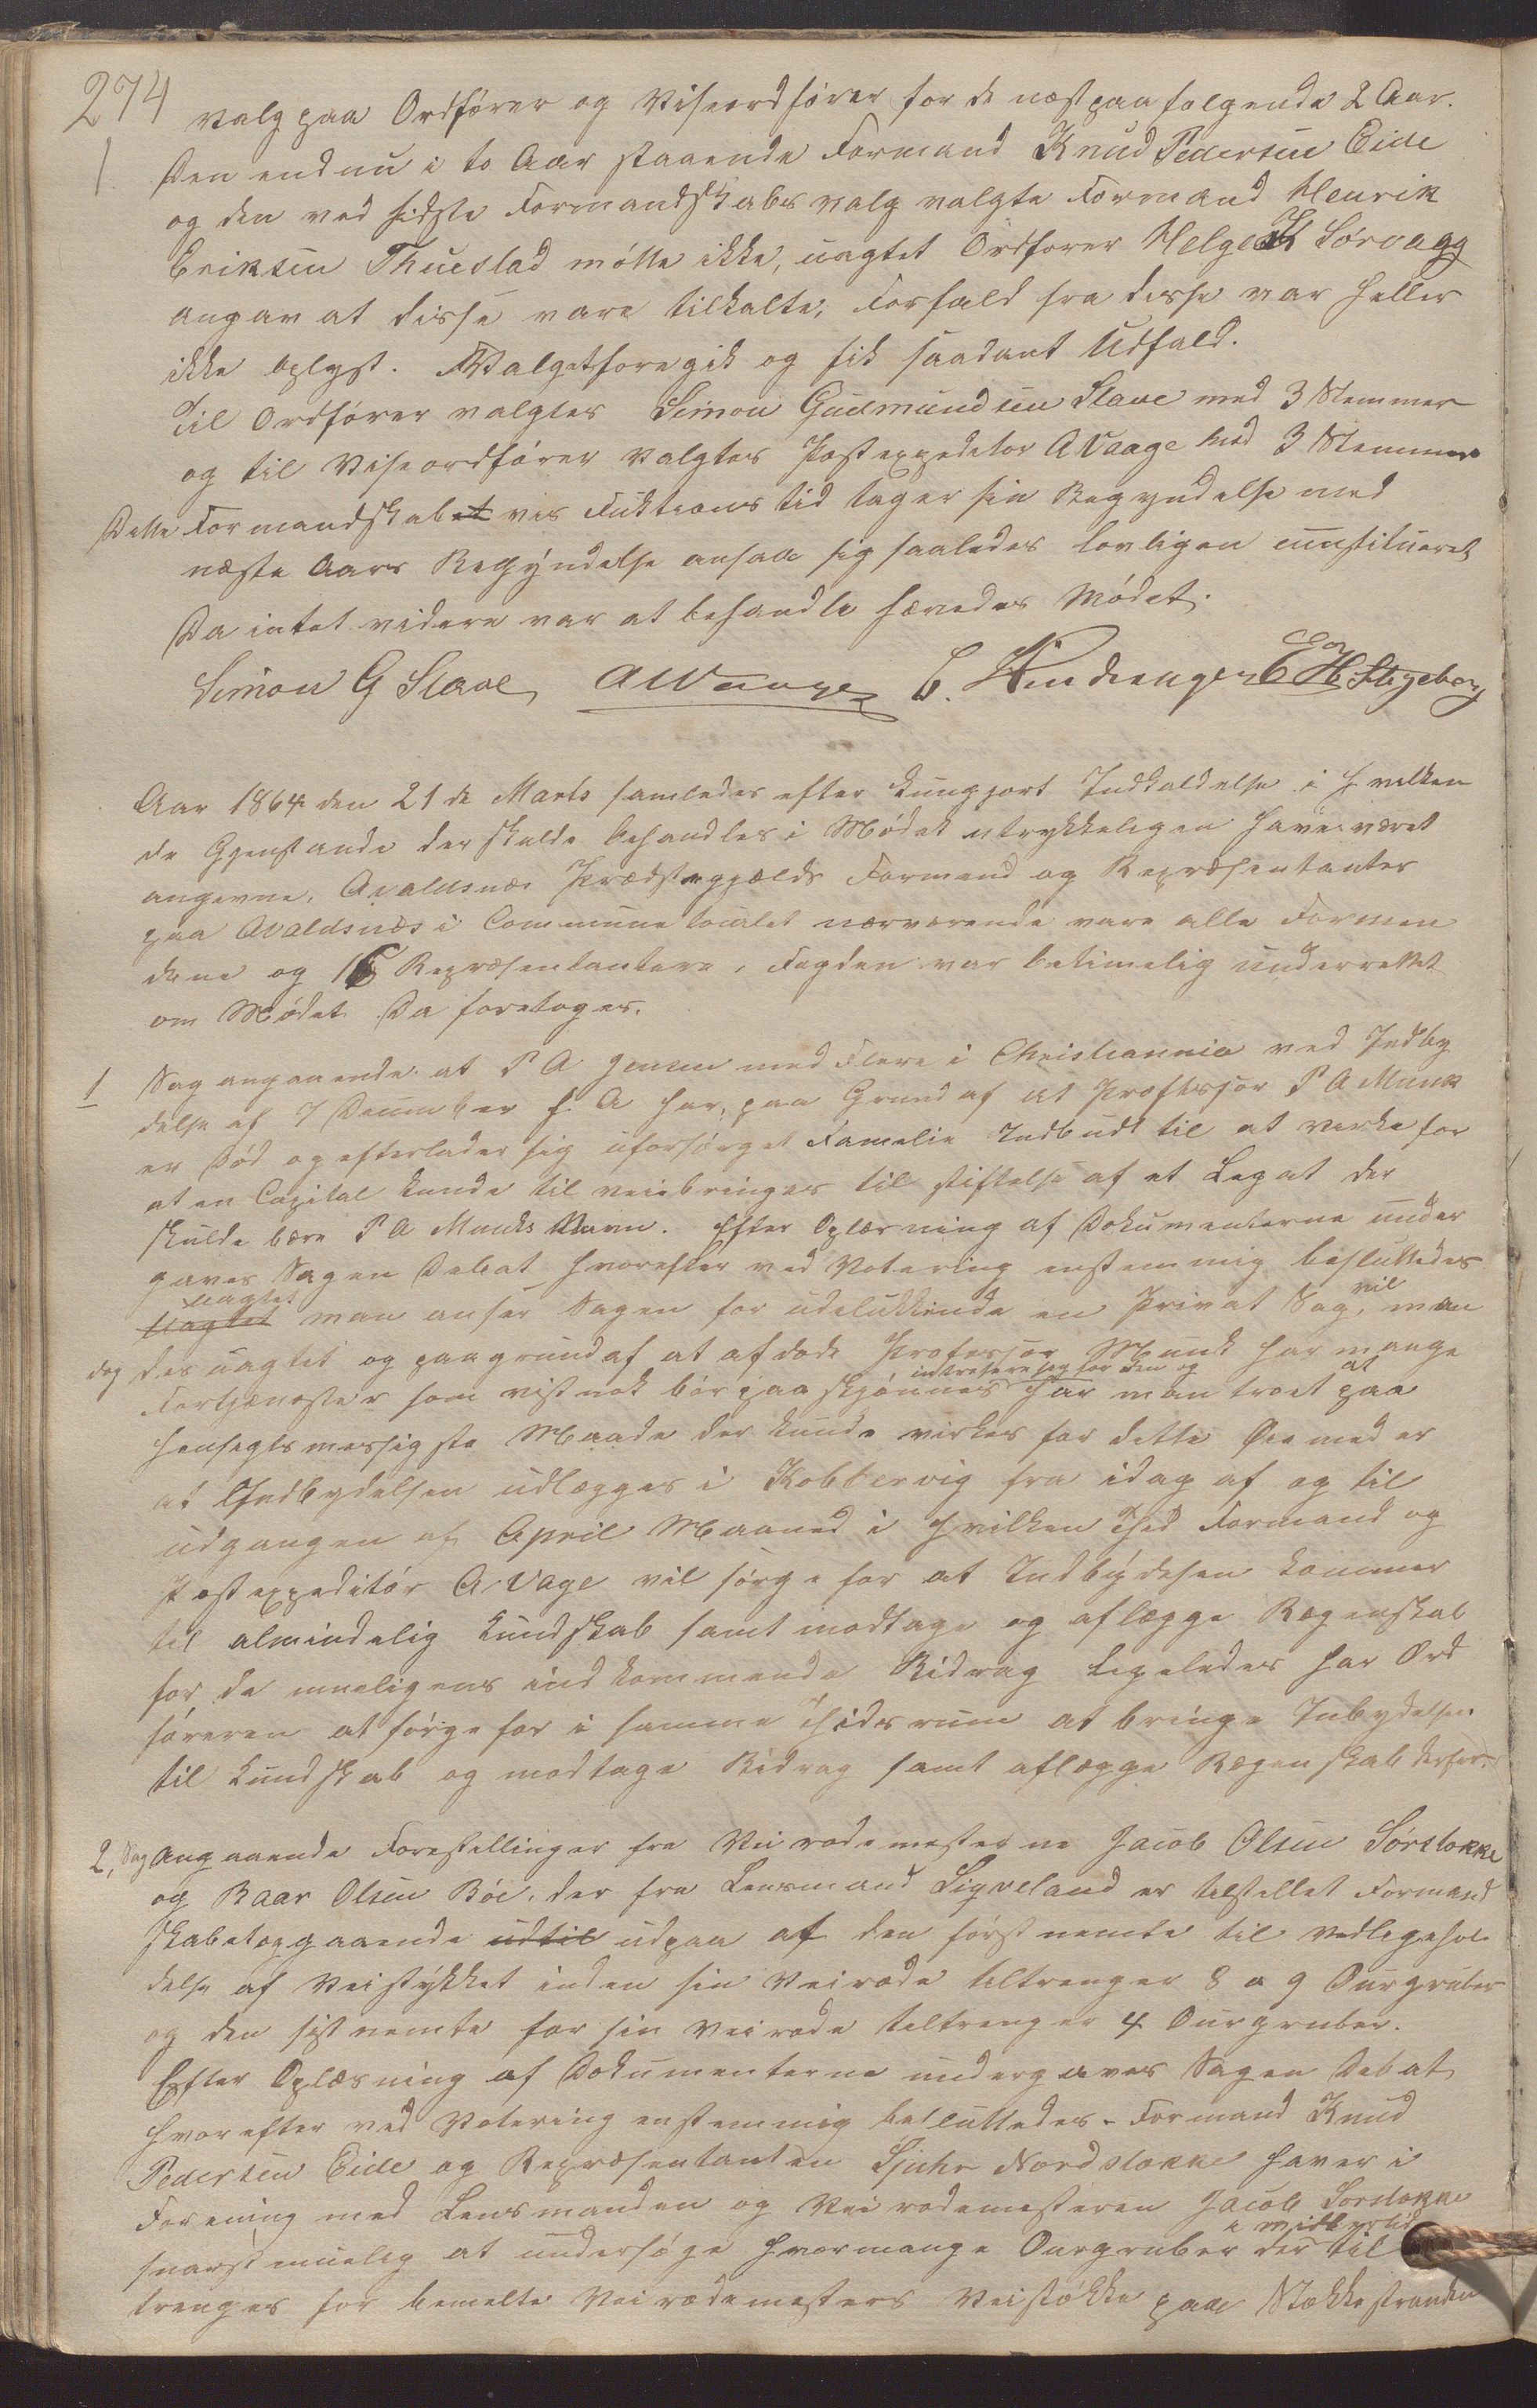 274
valg paa Ordfører og Viseordfører for de næstpaafølgende 2 Aar.
1. Den endnu i to Aar staaende Formand Knud Pedersen Eide
og den ved sidste Formandskabsvalg valgte Formand Henrik
Eriksen Thuestad mötte ikke, uagtet Ordforer Helge K Sörvagg
angav at disse vare tilkalte; Forfald fra disse var heller
ikke oplyst. Walgetforegik og fik saadant Udfald.
Til Ordfører valgtes Simon Gudmundsen Stave med 3 Stemmer
og til Viseordfører valgtes Postexpeditor A Vaage med 3 Stemmer
Dette Formandskabet ves Funktions tid tager sin Begyndelse med
næste Aars Begyndelse ansaa sig saaledes lovligen constitueret
Da intet videre var at behandle hævedes Mödet.
Simon G Stave A Waage E H Stegeberg
Aar 1864 den 21 de Marts samledes efter kungjort Indkaldelse i hvilken
de Gjenstande der skulde behandles i Mödet utrykkeligen have været
angevne, Avaldsnæs Prædstegjælds Formænd og Repræsentanter
paa Avaldsnæs i Commune localet nærværende vare alle Formæn
dene og 16 Repræsentantere, Fogden var betimelig underrettet
om Mödet. Da foretoges.
1 Sag angaaende at P A Jensen med Flere i Christiannia ved Indby
delse af 7 December f. A har, paa Grund af at Proftessor P A Munk
er Död og efterlader sig uforsörget Familie Indbudt til at verke for
at en Capital kunde tilveiebringes til stiftelse af et Legat der
skulde bære P A Munks Navn. Efter Oplæsning af Dokumenterne under
gaves Sagen Debat hvorefter ved Votering enstemmig besluttedes
uagtet
uagtet man anser Sagen for udelukkende en Privat Sag, vil man
dog des uagtet og paagrundaf at afdöde Professor Munk har mange
intresere sig for den og at
Fortjenester som vistnok bör paaskjönnes har man troet paa
hensigtsmessigste Maade der kunde virkes for dette Öiemed er
at Indbydelsen udlægges i Kobbervig fra idag af og til
udgangen af April Maaned i hvilken Tid Formand og
Postexpeditör A. Vage vil sörge for at Indbydesen kommer
til almindelig kundskab samt modtage og aflægge Regenskab
for de mueligens indkommende Bidrag ligeledes har Ord
föreren at sörge for i samme Tidsrum at bringe Inbydelsen
til kundskab og modtage Bidrag samt aflægge Regenskab derfor.
2, Sag angaaende Forestillinger fra Veirodemesterne Jacob Olsen Sörstokke
og Baar Olsen Böe, der fra Lensmand Sigveland er tilstillet Formand
skabet oggaaende udtil udpaa af den först nemte til vedligehol
delse af Veistykket inden sin Veirode tiltrenger 8 a 9 Ourgruber
og den sist nemte for sin Veirode tiltrenger 4 Ourgruber.
Efter Oplæsning af Dokumenterne undergaves Sagen Debat
hvorefter ved Votering enstemmig besluttedes. Formand Knud
Pedersen Eide og Repræsentanten Sjuhr Nordstokke haver i
Forening med Lensmanden og Veirodemesteren Jacob Sorstokke
snarst muelig at undersöge hvormange Ourgruber der til
trenges for bemelte Veirodemesters Veistökke paa Stokkestranden